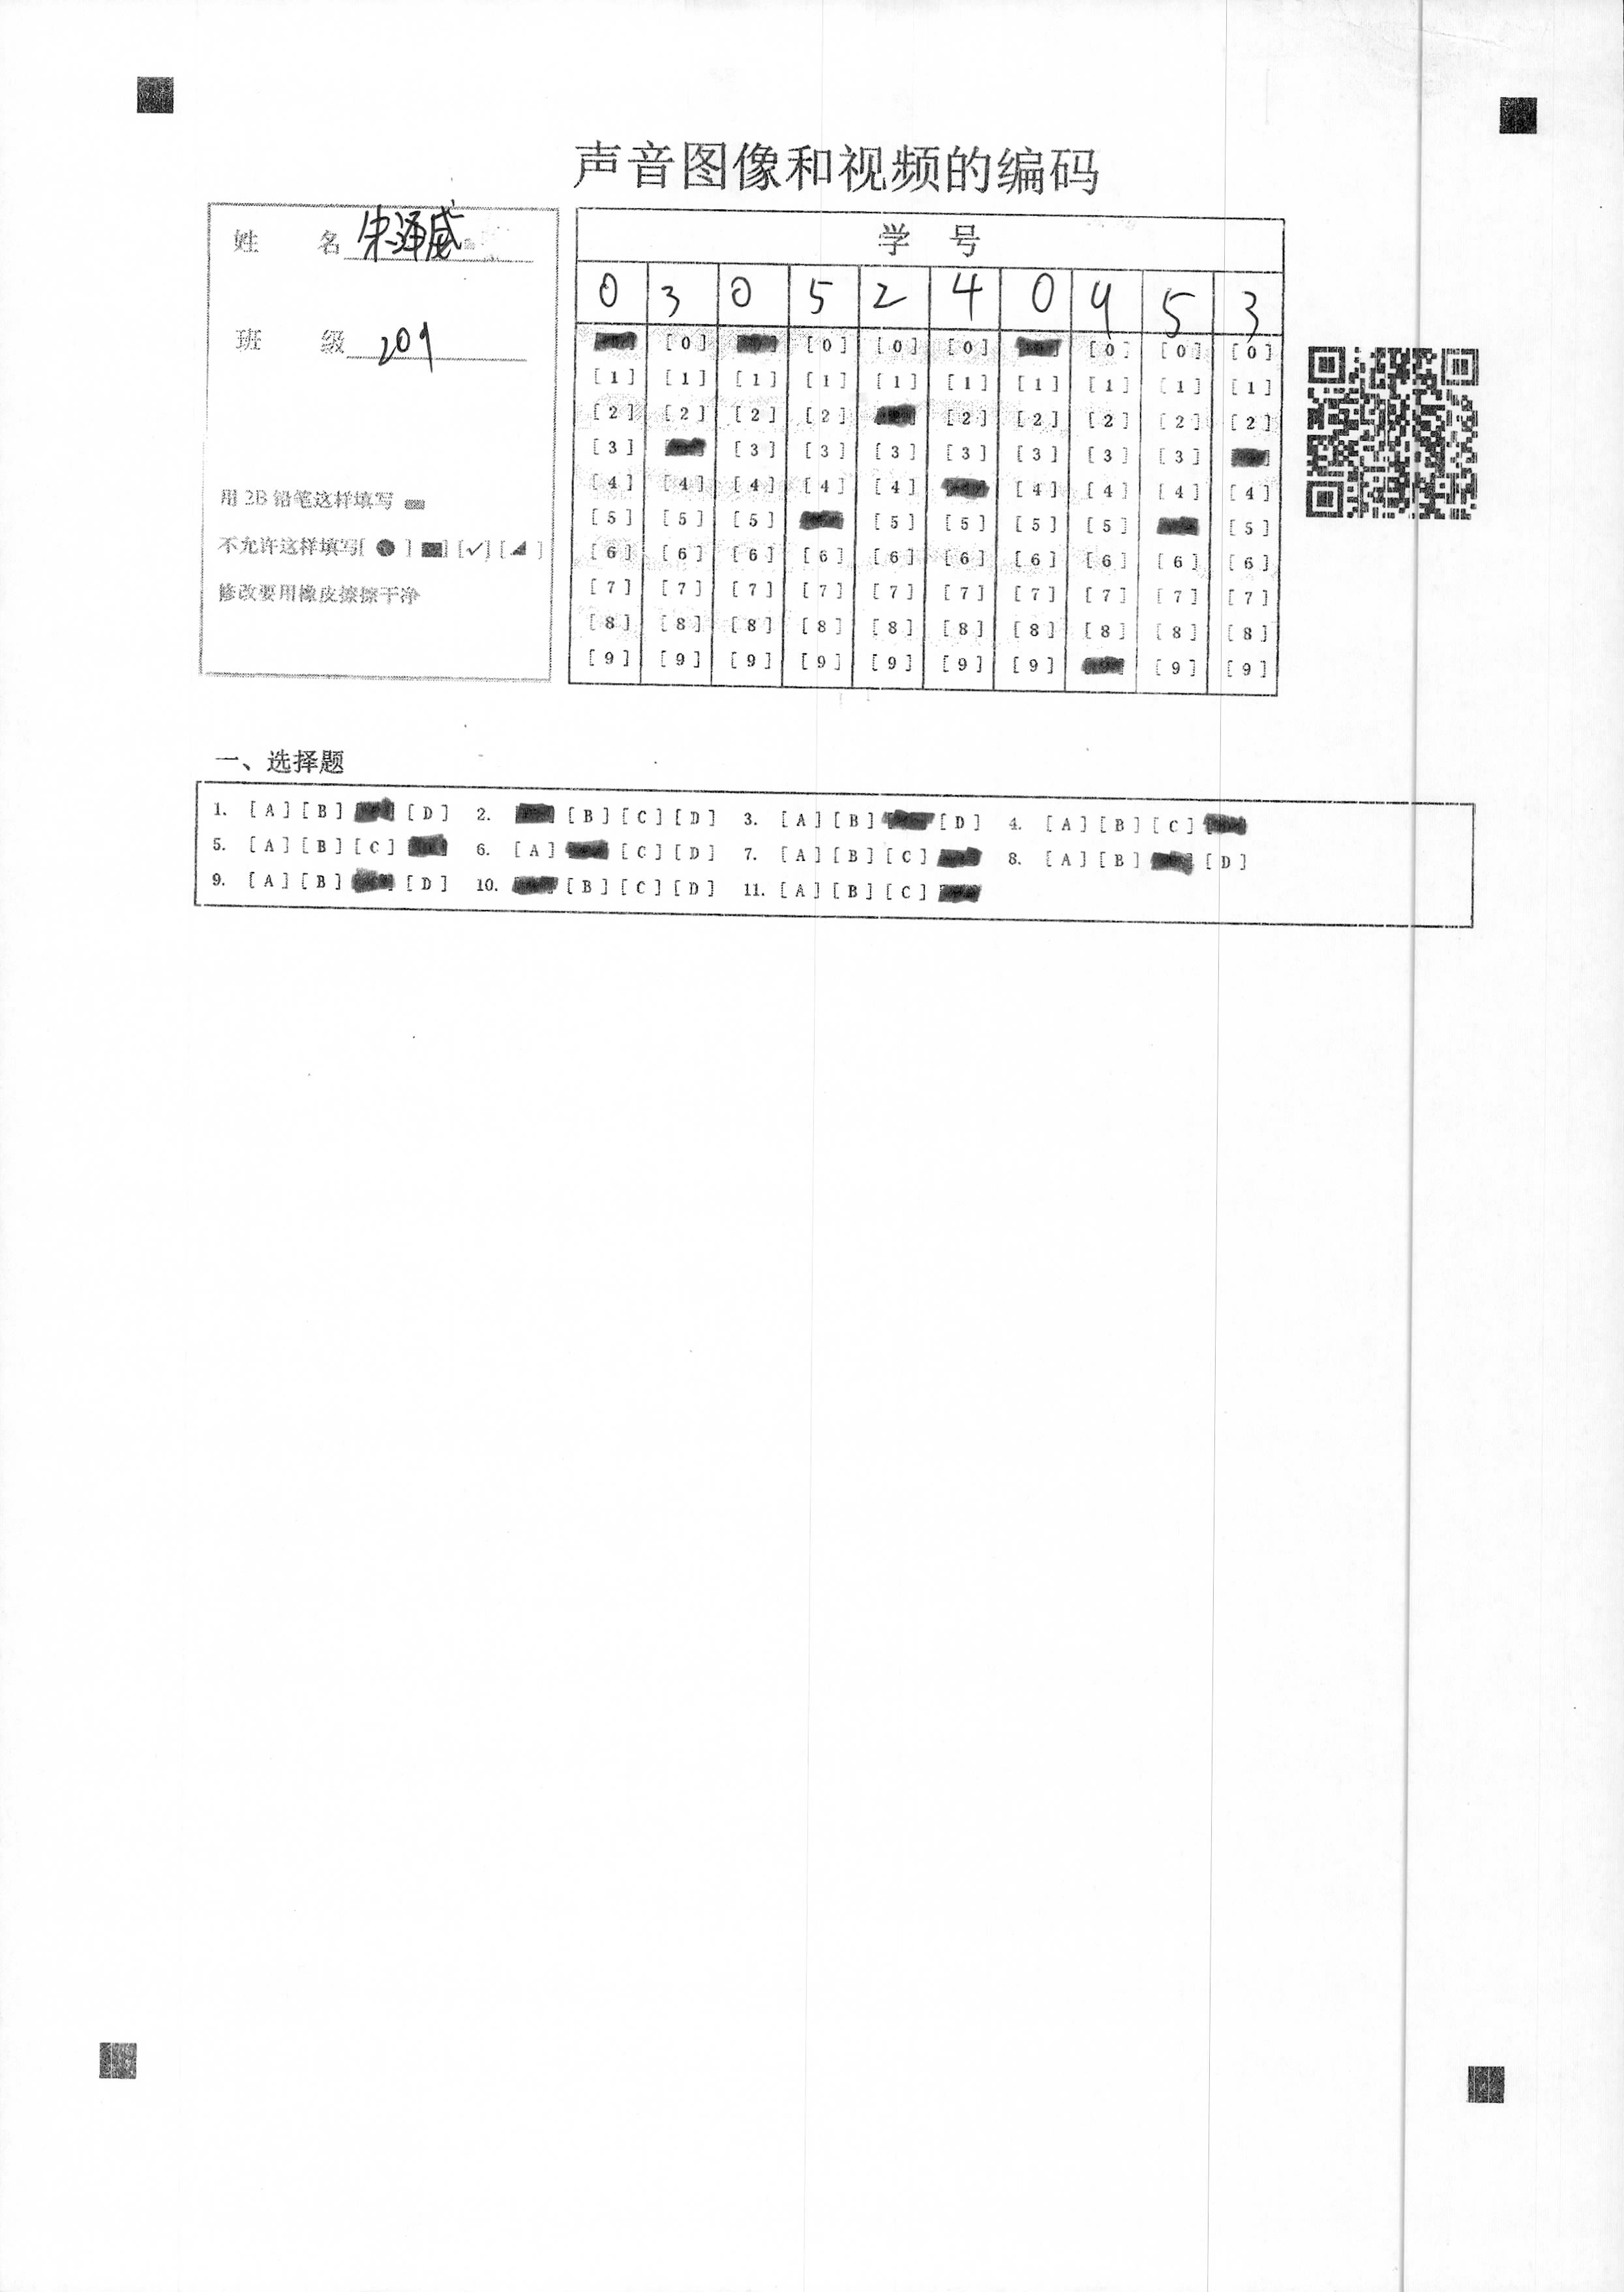 声音图像和视频的编码
姓 名 朱泽威
班 级 209
用 2B 铅笔这样填写
不允许这样填写[ ● ] ■] [✓] [◢ ]
修改要用橡皮擦擦干净
学 号
0 3 0 5 2 4 0 9 5 3
[0] [0] [0] [0] [0] [0] [0]
[1] [1] [1] [1] [1] [1] [1] [1] [1] [1]
[2] [2] [2] [2] [2] [2] [2] [2] [2]
[3] [3] [3] [3] [3] [3] [3] [3]
[4] [4] [4] [4] [4] [4] [4] [4] [4]
[5] [5] [5] [5] [5] [5] [5] [5]
[6] [6] [6] [6] [6] [6] [6] [6] [6] [6]
[7] [7] [7] [7] [7] [7] [7] [7] [7] [7]
[8] [8] [8] [8] [8] [8] [8] [8] [8] [8]
[9] [9] [9] [9] [9] [9] [9] [9] [9]
一、选择题
1. [A] [B] [D] 2. [B] [C] [D] 3. [A] [B] [D] 4. [A] [B] [C]
5. [A] [B] [C] 6. [A] [C] [D] 7. [A] [B] [C] 8. [A] [B] [D]
9. [A] [B] [D] 10. [B] [C] [D] 11. [A] [B] [C]